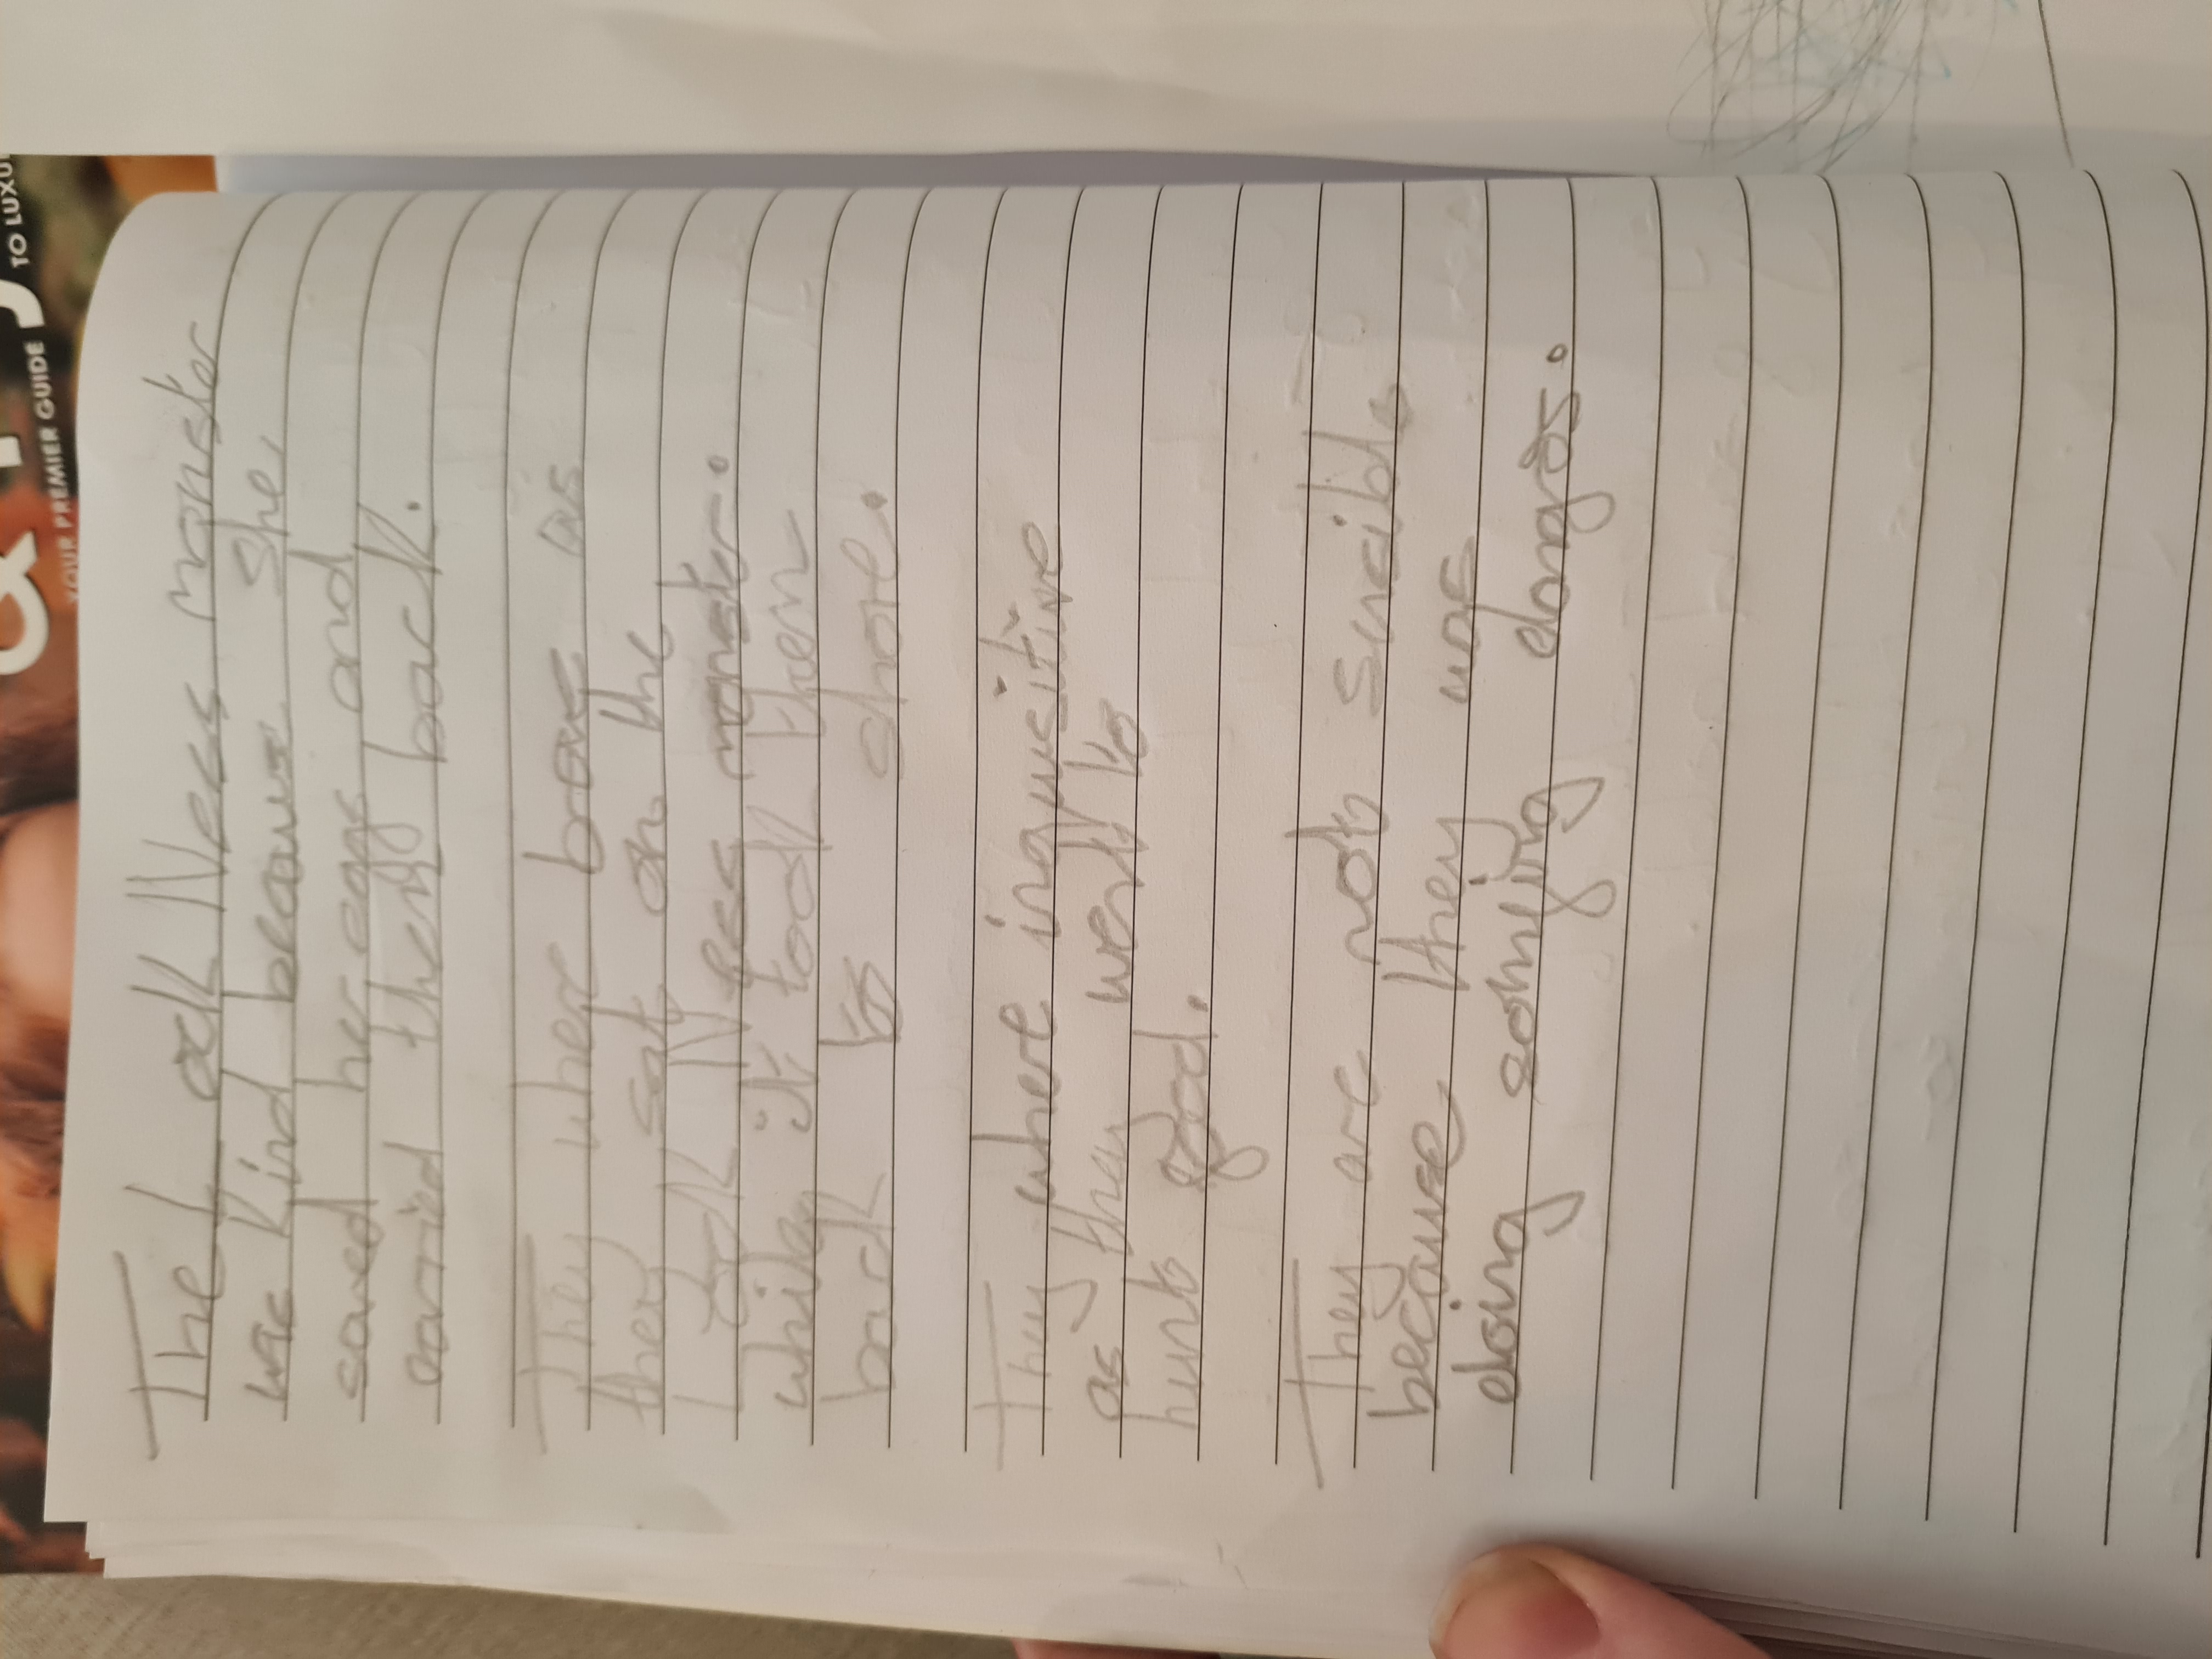 The Lock Ness monster
was kind becaus she
saved her eggs and
carried they back.
They where brave as
they sat on the
Lock Ness monster.
while it tock them
back to shore.
They where inqusitive
as they went to
hunt food.
They are not sensible
because they was
doing somejing
YOUR PREMIER GUIDE TO LUXU